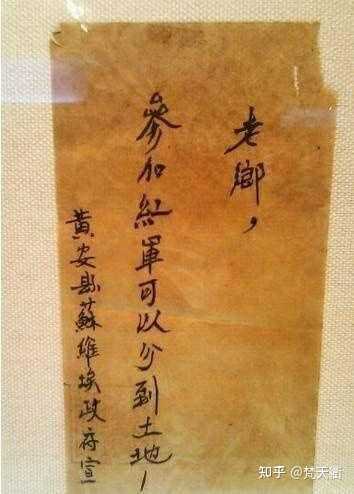 老鄉，
參加紅軍可以分到土地！
黃安縣蘇維埃政府宣
知乎 @梵天衢